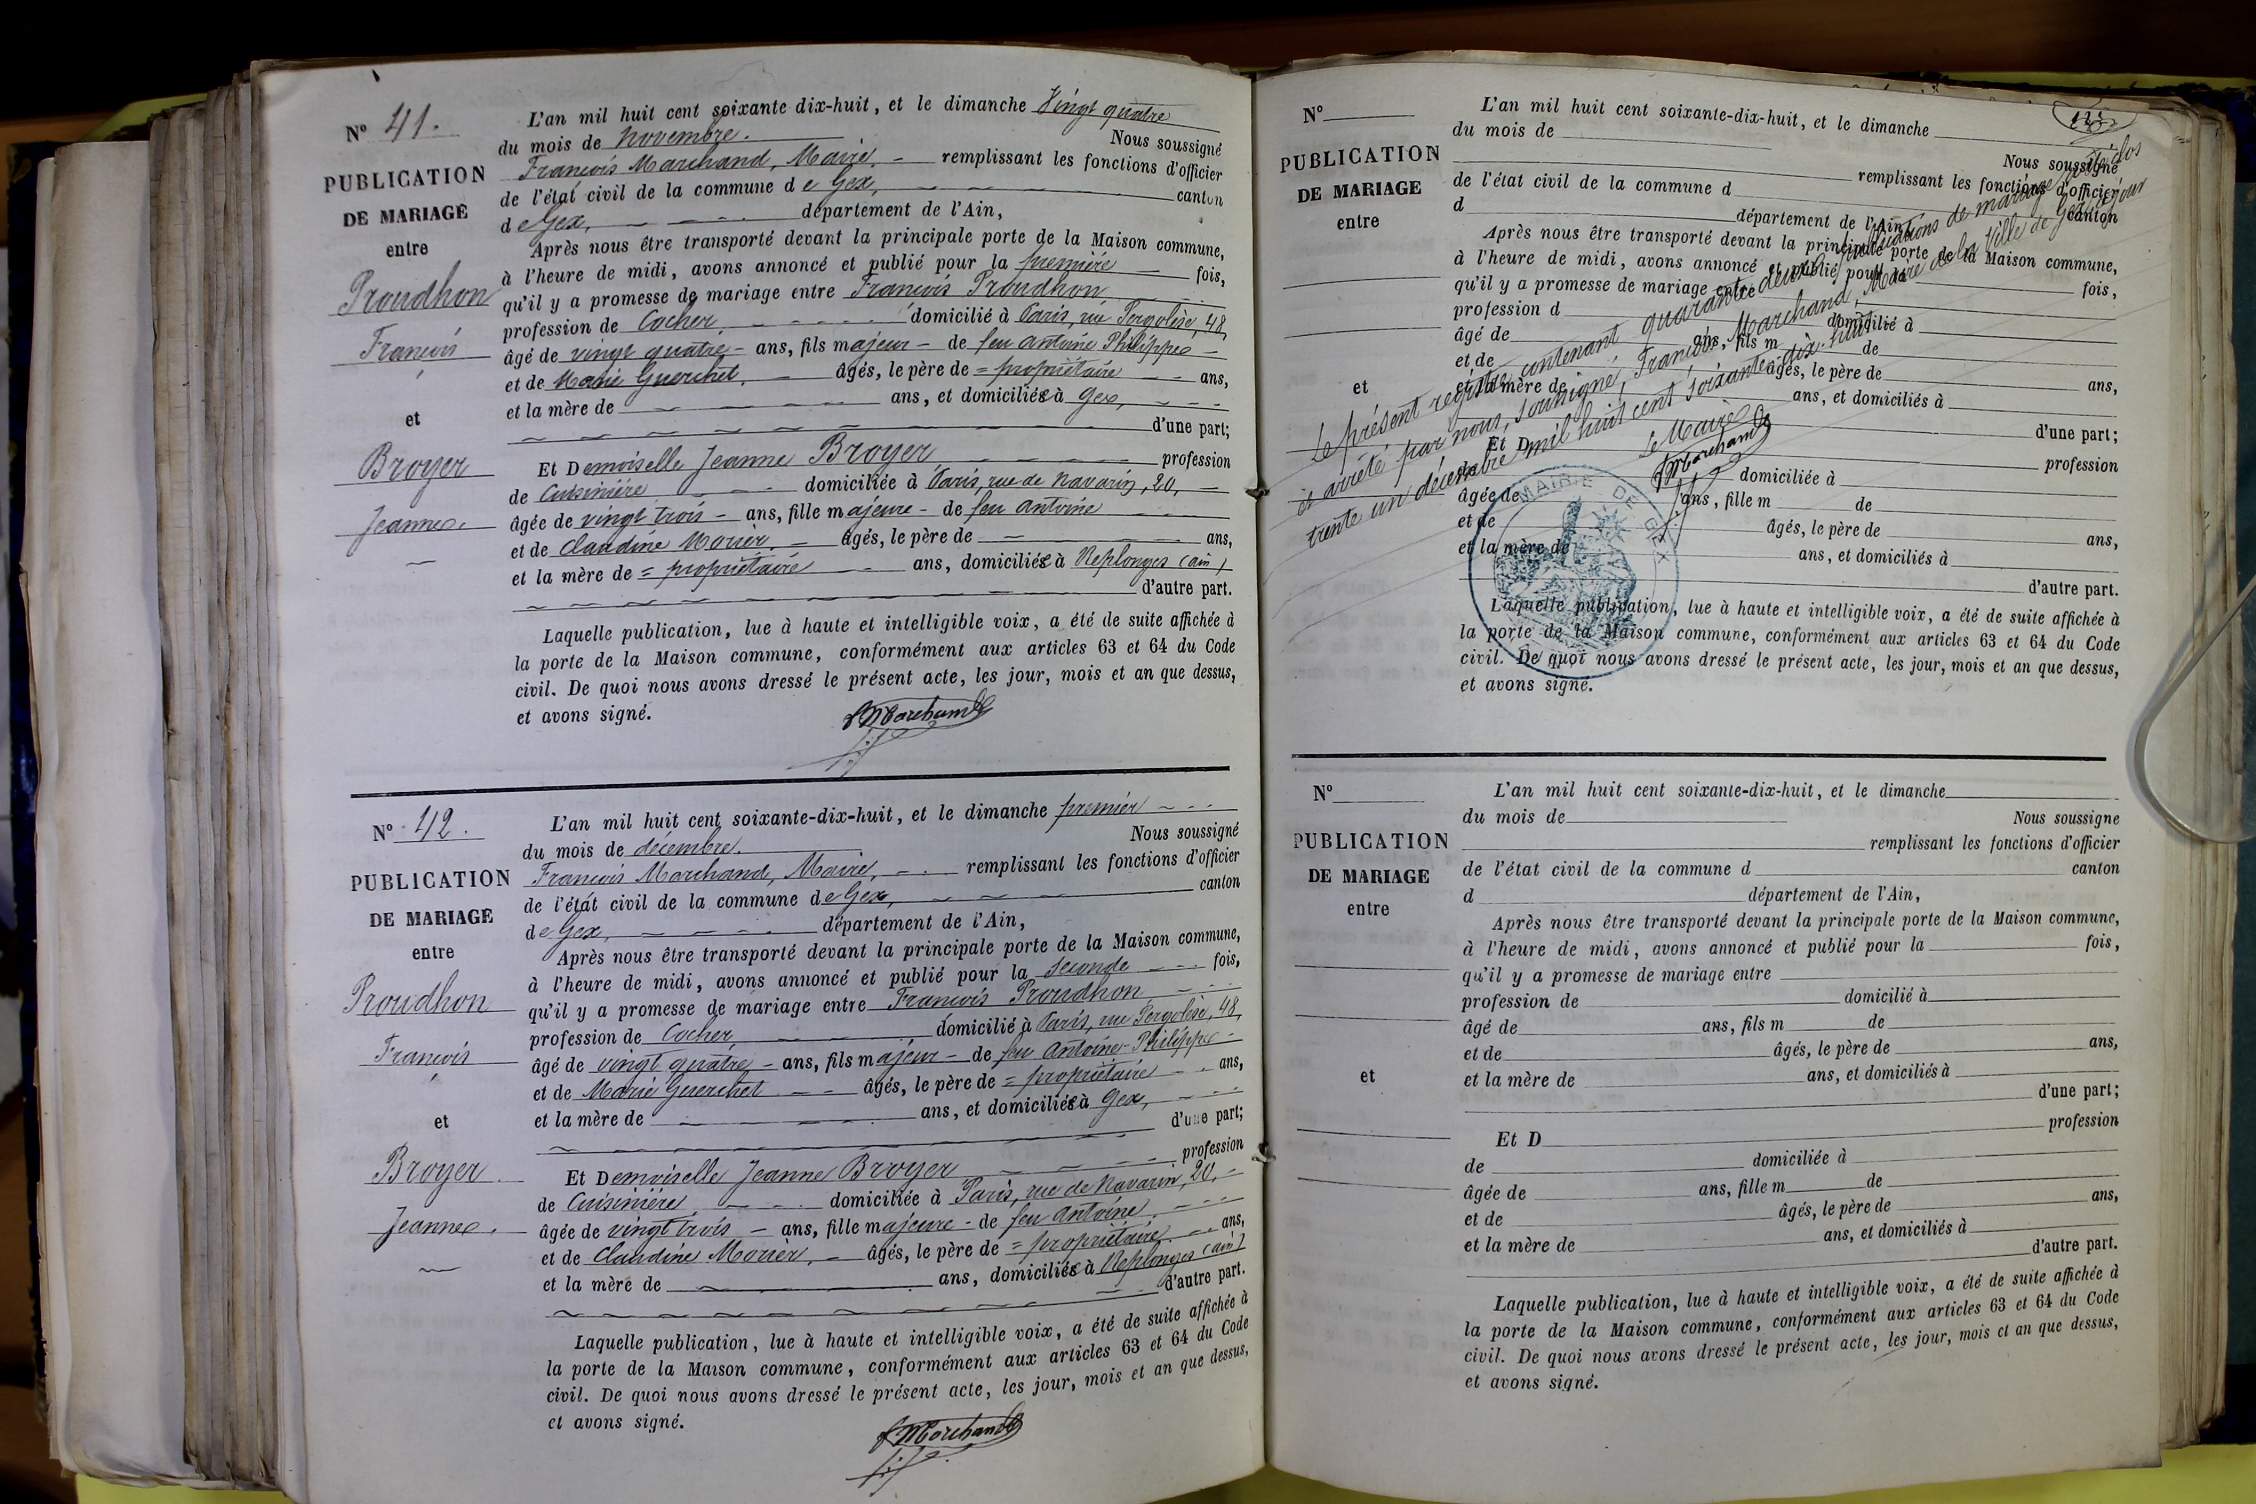 N° 41.
PUBLICATION
DE MARIAGE
entre
Proudhon
François
et
Broyer
Jeanne
L'an mil huit cent soixante-dix-huit, et le dimanche Vingt quatre
du mois de novembre. Nous soussigné
François Marchand, Maire, remplissant les fonctions d'officier
de l'état civil de la commune de Gex, canton
de Gex, département de l'Ain,
Après nous être transporté devant la principale porte de la Maison commune,
à l'heure de midi, avons annoncé et publié pour la première fois,
qu'il y a promesse de mariage entre François Proudhon
profession de Cocher, domicilié à Paris, rue Pergolèse, 48,
âgé de vingt quatre ans, fils majeur de feu Antoine Philippe
et de Marie Guerchet, âgés, le père de = propriétaire ans,
et la mère de ans, et domiciliés à Gex,
d'une part;
Et Demoiselle Jeanne Broyer profession
de Cuisinière domiciliée à Paris, rue de Navarin, 20,
âgée de vingt trois ans, fille majeure de feu Antoine
et de Claudine Morier, âgés, le père de ans,
et la mère de = propriétaire ans, domiciliés à Replonges (ain)
d'autre part.
Laquelle publication, lue à haute et intelligible voix, a été de suite affichée à
la porte de la Maison commune, conformément aux articles 63 et 64 du Code
civil. De quoi nous avons dressé le présent acte, les jour, mois et an que dessus,
et avons signé.
f Marchand
N° 42.
PUBLICATION
DE MARIAGE
entre
Proudhon
François
et
Broyer
Jeanne
L'an mil huit cent soixante-dix-huit, et le dimanche premier
du mois de décembre. Nous soussigné
François Marchand, Maire, remplissant les fonctions d'officier
de l'état civil de la commune de Gex, canton
de Gex, département de l'Ain,
Après nous être transporté devant la principale porte de la Maison commune,
à l'heure de midi, avons annoncé et publié pour la seconde fois,
qu'il y a promesse de mariage entre François Proudhon
profession de Cocher, domicilié à Paris, rue Pergolèse, 48,
âgé de vingt quatre ans, fils majeur de feu Antoine-Philippe
et de Marie Guerchet âgés, le père de = propriétaire ans,
et la mère de ans, et domiciliés à Gex,
d'une part;
Et Demoiselle Jeanne Broyer profession
de Cuisinière, domiciliée à Paris, rue de Navarin, 20,
âgée de vingt trois ans, fille majeure de feu Antoine,
et de Claudine Morier, âgés, le père de = propriétaire ans,
et la mère de ans, domiciliés à Replonges (ain)
d'autre part.
Laquelle publication, lue à haute et intelligible voix, a été de suite affichée à
la porte de la Maison commune, conformément aux articles 63 et 64 du Code
civil. De quoi nous avons dressé le présent acte, les jour, mois et an que dessus,
et avons signé.
f Marchand
N°
PUBLICATION
DE MARIAGE
entre
et
L'an mil huit cent soixante-dix-huit, et le dimanche
du mois de Nous soussigné
remplissant les fonctions d'officier
de l'état civil de la commune d canton
d département de l'Ain,
Après nous être transporté devant la principale porte de la Maison commune,
à l'heure de midi, avons annoncé et publié pour la fois,
qu'il y a promesse de mariage entre
profession d domicilié à
âgé de ans, fils m de
et de âgés, le père de ans,
et la mère de ans, et domiciliés à
d'une part;
Et D profession
de domiciliée à
âgée de ans, fille m de
et de âgés, le père de ans,
et la mère de ans, et domiciliés à
d'autre part.
Laquelle publication, lue à haute et intelligible voix, a été de suite affichée à
la porte de la Maison commune, conformément aux articles 63 et 64 du Code
civil. De quoi nous avons dressé le présent acte, les jour, mois et an que dessus,
et avons signé.
Le présent registre contenant quarante deux publications de mariage clos
et arrêté par nous, soussigné, François Marchand, Maire de la Ville de Gex, jour
trente un décembre mil huit cent soixante-dix-huit.
Le Maire
f Marchand
MAIRIE DE GEX
N°
PUBLICATION
DE MARIAGE
entre
et
L'an mil huit cent soixante-dix-huit, et le dimanche
du mois de Nous soussigné
remplissant les fonctions d'officier
de l'état civil de la commune d canton
d département de l'Ain,
Après nous être transporté devant la principale porte de la Maison commune,
à l'heure de midi, avons annoncé et publié pour la fois,
qu'il y a promesse de mariage entre
profession de domicilié à
âgé de ans, fils m de
et de âgés, le père de ans,
et la mère de ans, et domiciliés à
d'une part;
Et D profession
de domiciliée à
âgée de ans, fille m de
et de âgés, le père de ans,
et la mère de ans, et domiciliés à
d'autre part.
Laquelle publication, lue à haute et intelligible voix, a été de suite affichée à
la porte de la Maison commune, conformément aux articles 63 et 64 du Code
civil. De quoi nous avons dressé le présent acte, les jour, mois et an que dessus,
et avons signé.